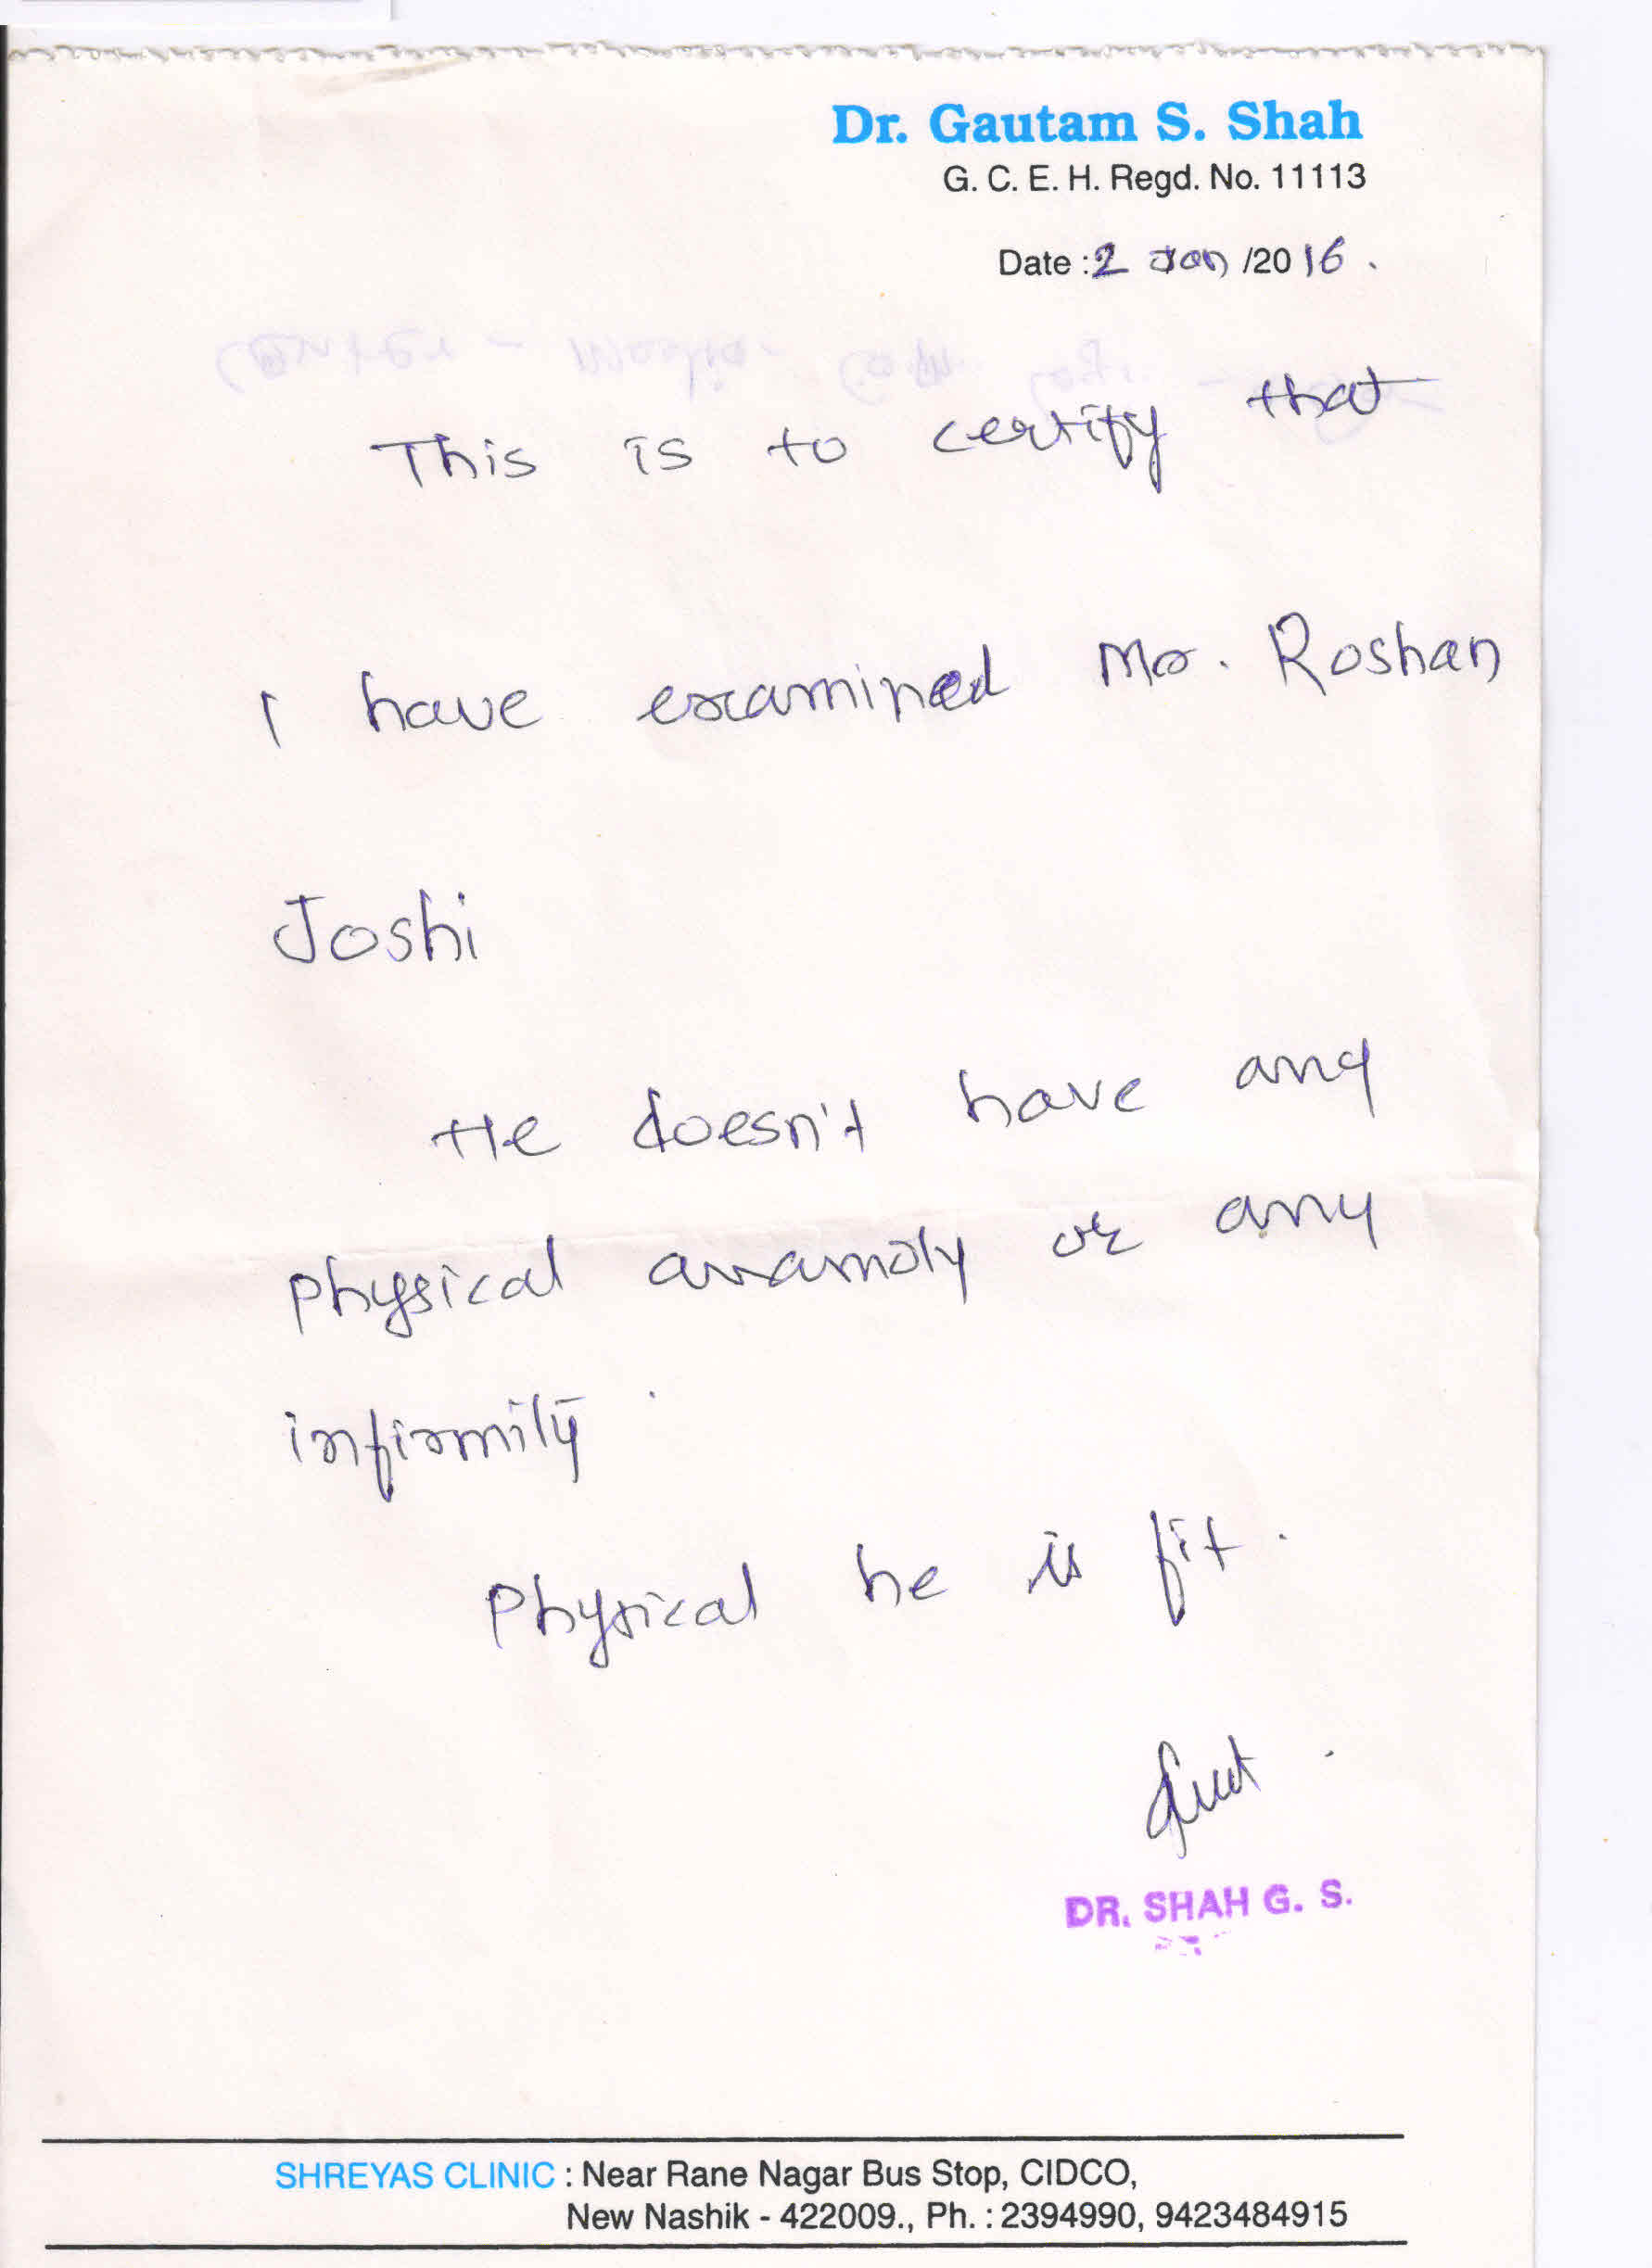 Dr. Gautam S. Shah
G. C. E. H. Regd. No. 11113
Date : 2 Jan /2016.
This is to certify that
I have examined Mr. Roshan
Joshi
He doesn't have any
physical anamoly or any
infirmity.
Physical he is fit.
DR. SHAH G. S.
SHREYAS CLINIC : Near Rane Nagar Bus Stop, CIDCO,
New Nashik - 422009., Ph. : 2394990, 9423484915